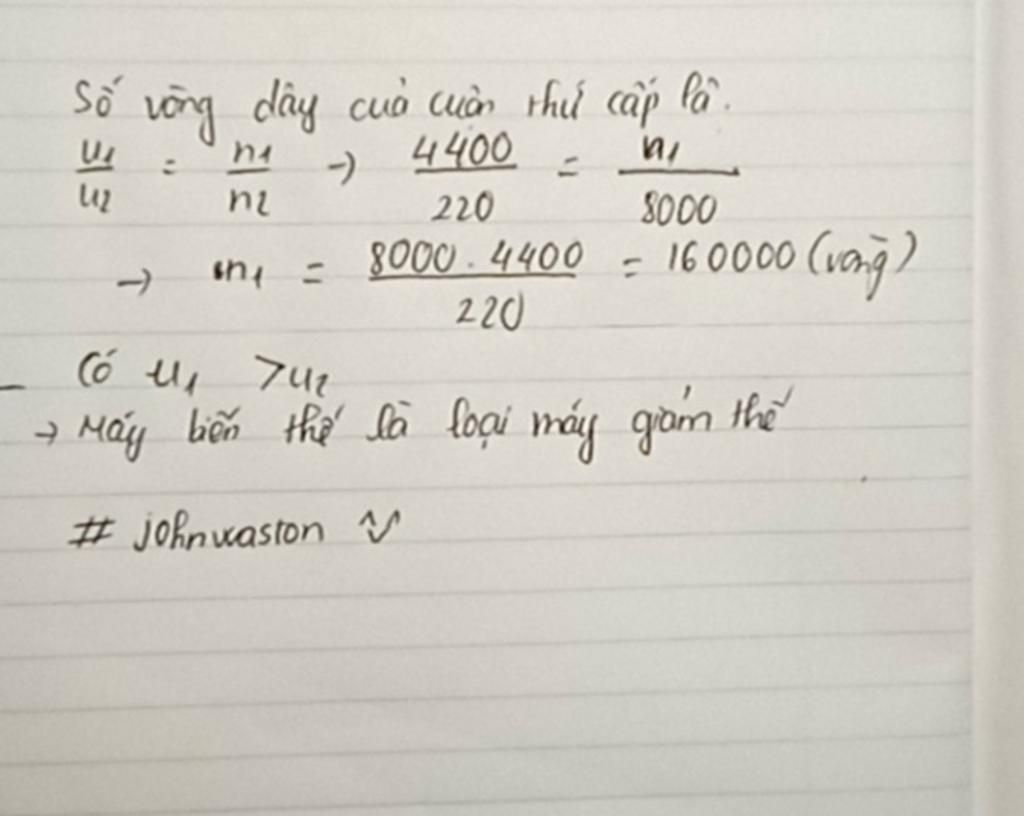 Số vòng dây của cuộn thứ cấp là.
u1/u2 = n1/n2 → 4400/220 = n1/8000
→ n1 = 8000.4400/220 = 160000 (vòng)
- Có u1 > u2
→ Máy biến thế là loại máy giảm thế
# johnwaston